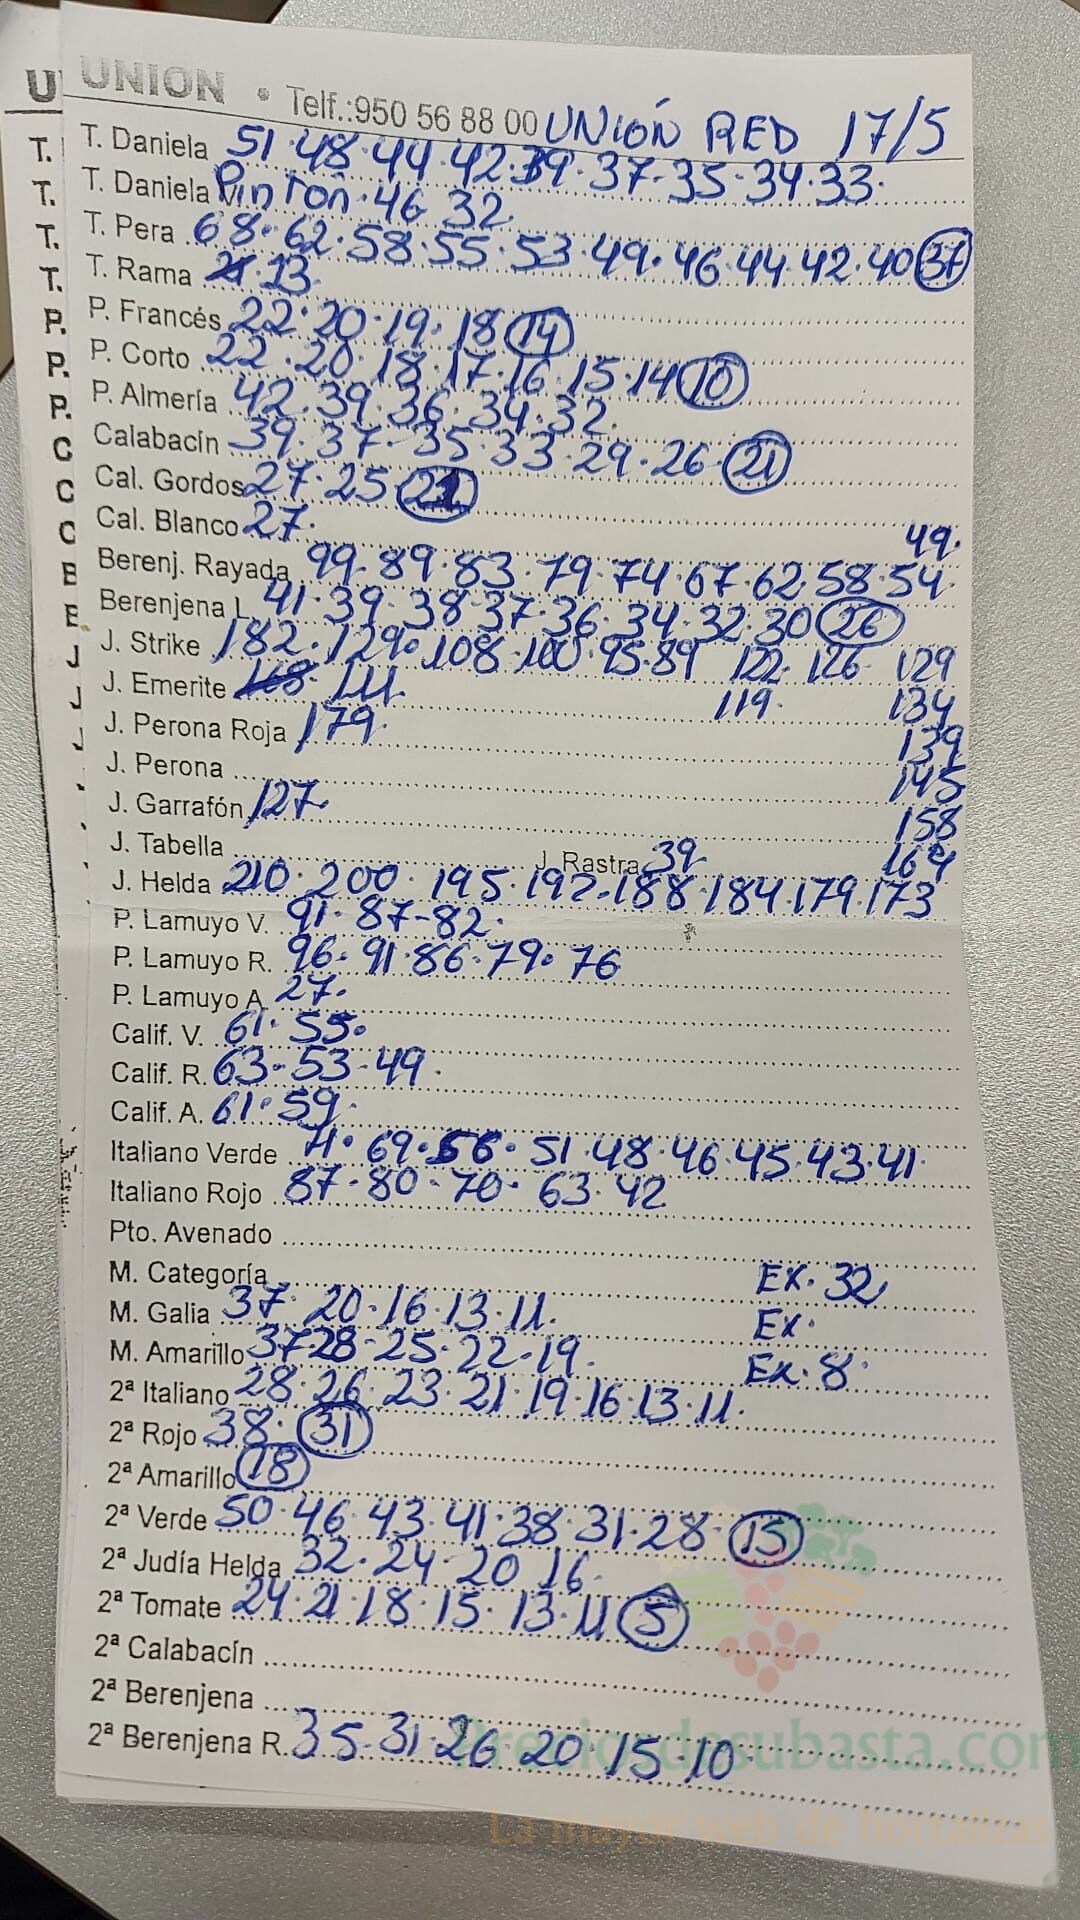 UNION • Telf.:950 56 88 00 UNIÓN RED 17/5
T. Daniela 51·48·44·42·39·37·35·34·33·
T. Daniela Pinton·46 32
T. Pera 68·62·58·55·53·49·46·44·42·40 37
T. Rama 13
P. Francés 22·20·19·18 14
P. Corto 22·20·18·17·16·15·14 10
P. Almería 42·39·36·34·32
Calabacín 39·37-35·33·29·26·21
Cal. Gordos 27·25 21
Cal. Blanco 27· 49·
Berenj. Rayada 99·89·83·79·74·67·62·58·54
Berenjena L. 41·39·38·37·36·34·32·30 26
J. Strike 182·129·108·100·95·89 122·126 129
J. Emerite 168· 111 119· 134
J. Perona Roja 179· 139
J. Perona 145
J. Garrafón 127· 158
J. Tabella J. Rastra 39 164
J. Helda 210·200·195·192·188·184·179·173
P. Lamuyo V. 91·87-82·
P. Lamuyo R. 96·91·86·79·76
P. Lamuyo A. 27·
Calif. V. 61·55·
Calif. R. 63-53-49·
Calif. A. 61·59·
Italiano Verde 71·69·56·51·48·46·45·43·41·
Italiano Rojo 87-80·70·63·42
Pto. Avenado
M. Categoría EX·32
M. Galia 37·20·16·13·11· EX·
M. Amarillo 37 28·25·22·19· EX·8·
2ª Italiano 28·26·23·21·19·16·13·11·
2ª Rojo 38·31
2ª Amarillo 18
2ª Verde 50·46·43·41·38·31·28·15
2ª Judía Helda 32·24·20 16·
2ª Tomate 24·21·18·15·13·11 5
2ª Calabacín
2ª Berenjena
2ª Berenjena R. 35·31·26·20·15·10
Preciosdesubasta.com
La mayor web de hortalizas
U
T.
T.
T.
T.
P.
P.
P.
C
C
C
B
B
J
J
J